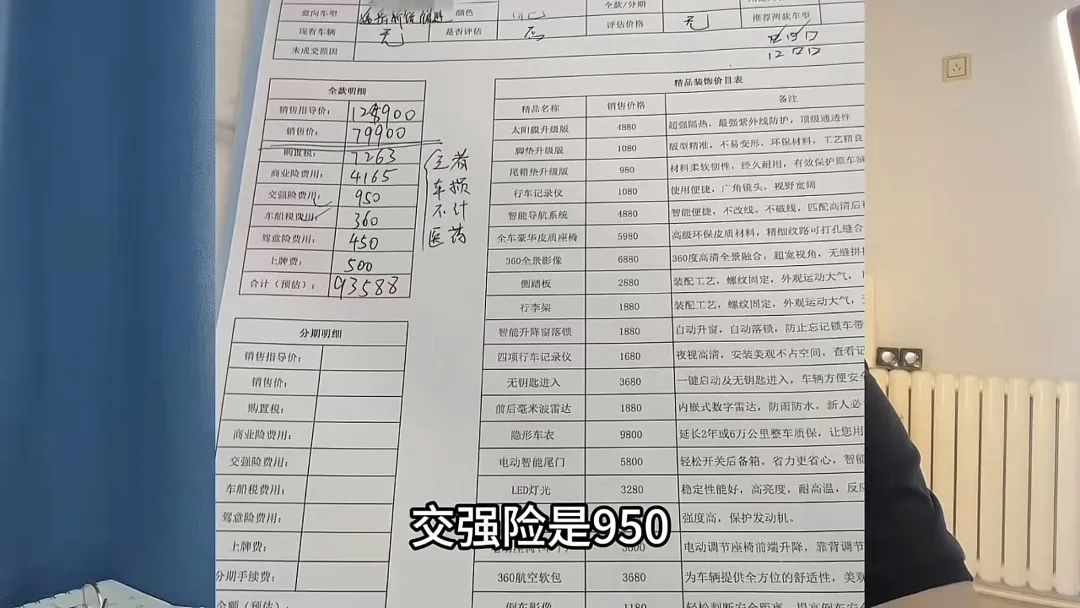 意向车型 颜色 全款/分期
现有车辆 无 是否评估 否 评估价格 无 推荐两款车型
未成交原因
全款明细
销售指导价: 128900
销售价: 79900
购置税: 7263
商业险费用: 4165
交强险费用: 950
车船税费用: 360
驾意险费用: 450
上牌费: 500
合计(预估): 93588
车损
不计
医药
分期明细
销售指导价:
销售价:
购置税:
商业险费用:
交强险费用:
车船税费用:
驾意险费用:
上牌费:
分期手续费:
精品装饰价目表
精品名称 销售价格 备注
太阳膜升级版 4880 超强隔热,最强紫外线防护,顶级通透性
脚垫升级版 1080 版型精准,不易变形,环保材料,工艺精良
尾箱垫升级版 980 材料柔软韧性,经久耐用,有效保护原车绒
行车记录仪 1080 使用便捷,广角镜头,视野宽阔
智能导航系统 4880 智能便捷,不改线。不破线,匹配高清后视
全车豪华皮质座椅 5980 高级环保皮质材料,精细纹路可打孔缝合
360全景影像 6880 360度高清全景融合,超宽视角,无缝拼接
侧踏板 2880 装配工艺,螺纹固定,外观运动大气,
行李架 1880 装配工艺,螺纹固定,外观运动大气,
智能升降窗落锁 1880 自动升窗,自动落锁,防止忘记锁车带
四项行车记录仪 1680 夜视高清,安装美观不占空间,查看记
无钥匙进入 3680 一键启动及无钥匙进入,车辆方便安全
前后毫米波雷达 1880 内嵌式数字雷达,防雨防水,新人必
隐形车衣 9800 延长2年或6万公里整车质保,让您用
电动智能尾门 5800 轻松开关后备箱,省力更省心,智能
LED灯光 3280 稳定性能好,高亮度,耐高温,反应
强度高,保护发动机。
电动调节座椅前端升降,靠背调节
360航空软包 3680 为车辆提供全方位的舒适性,美观
倒车影像 1180
交强险是950